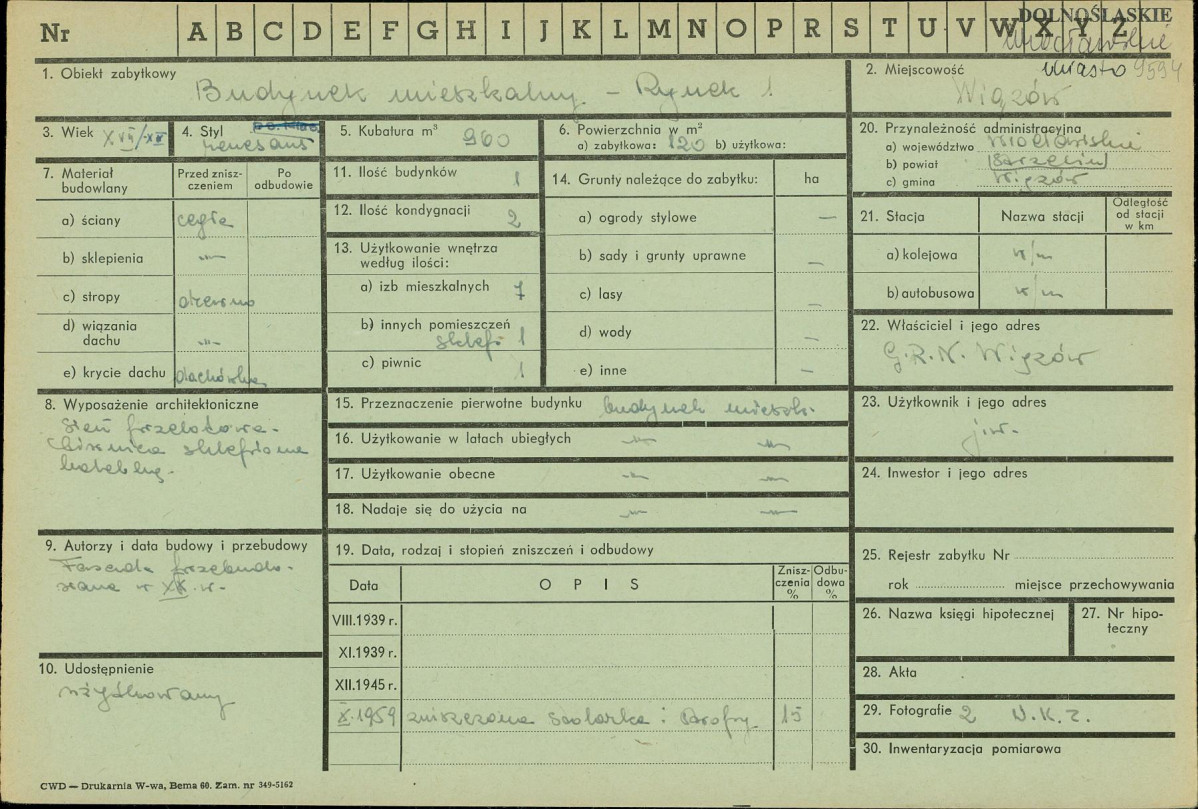 Nr A B C D E F G H I J K L M N O P R S T U V W X Y Z
DOLNOŚLĄSKIE
wrocławskie
miasto 9594
1. Obiekt zabytkowy
Budynek mieszkalny. - Rynek 1
2. Miejscowość
Wiązów
3. Wiek XVII/XIX
4. Styl
renesans
5. Kubatura m³ 960
6. Powierzchnia w m²
a) zabytkowa: 120 b) użytkowa:
20. Przynależność administracyjna
a) województwo wrocławskie
b) powiat Strzelin
c) gmina Wiązów
7. Materiał budowlany
Przed zniszczeniem
Po odbudowie
a) ściany cegła
b) sklepienia -"-
c) stropy drewno
d) wiązania dachu -"-
e) krycie dachu dachówka
11. Ilość budynków 1
12. Ilość kondygnacji 2
13. Użytkowanie wnętrza według ilości:
a) izb mieszkalnych 7
b) innych pomieszczeń
sklep 1
c) piwnic 1
14. Grunty należące do zabytku: ha
a) ogrody stylowe —
b) sady i grunty uprawne —
c) lasy —
d) wody —
e) inne —
21. Stacja Nazwa stacji Odległość od stacji w km
a) kolejowa w/m
b) autobusowa w/m
22. Właściciel i jego adres
G.R.N. Wiązów
8. Wyposażenie architektoniczne
Sień przelotowa.
sklepiona
kolebką.
15. Przeznaczenie pierwotne budynku budynek mieszk.
16. Użytkowanie w latach ubiegłych -"- -"-
17. Użytkowanie obecne -"- -"-
18. Nadaje się do użycia na -"- -"-
23. Użytkownik i jego adres
j.w.
24. Inwestor i jego adres
9. Autorzy i data budowy i przebudowy
Fasada przebudo-
wana w XIX w.
19. Data, rodzaj i stopień zniszczeń i odbudowy
Data OPIS Zniszczenia % Odbudowa %
VIII.1939 r.
XI.1939 r.
XII.1945 r.
X.1959 zniszczona stolarka i 15
25. Rejestr zabytku Nr
rok miejsce przechowywania
26. Nazwa księgi hipotecznej
27. Nr hipoteczny
10. Udostępnienie
użytkowany
28. Akta
29. Fotografie 2 W.K.Z.
30. Inwentaryzacja pomiarowa
CWD — Drukarnia W-wa, Bema 60. Zam. nr 349-5162